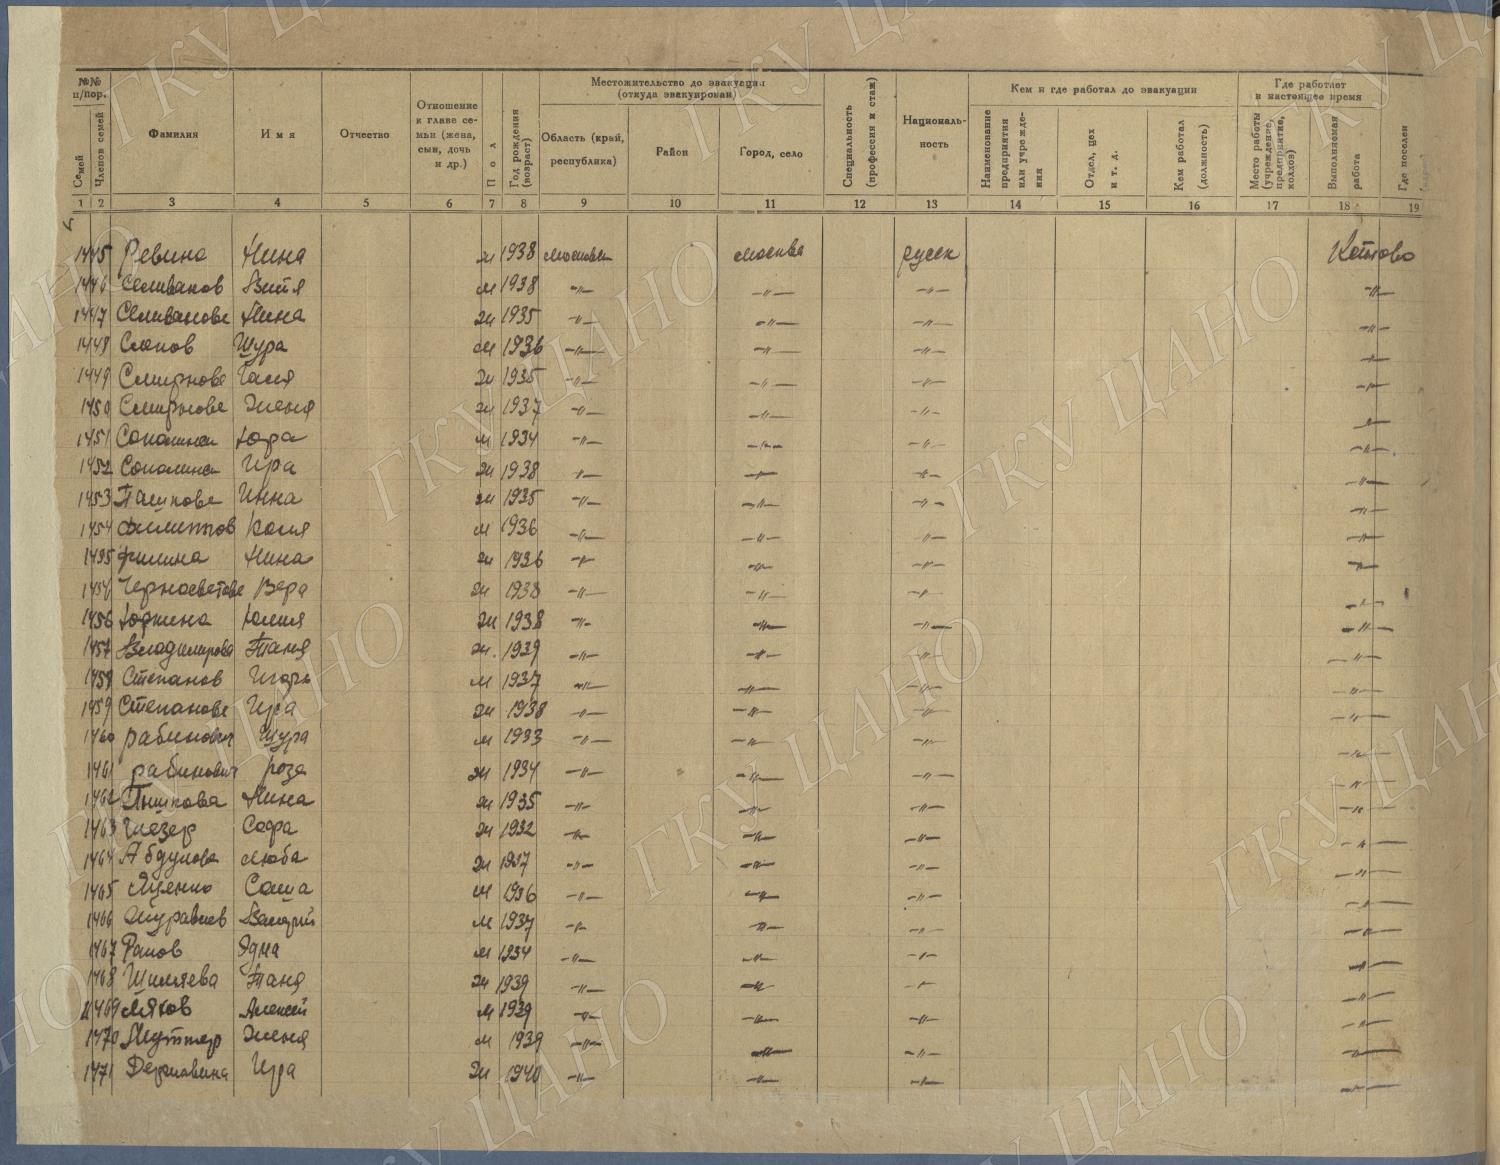 №№ п/пор.
Семей
Членов семей
Фамилия
Имя
Отчество
Отношение к главе семьи (жена, сын, дочь и др.)
Пол
Год рождения (возраст)
Местожительство до эвакуации (откуда эвакуирован)
Область (край, республика)
Район
Город, село
Специальность (профессия и стаж)
Националь-
ность
Кем и где работал до эвакуации
Наименование предприятия или учреждения
Отдел, цех и т. д.
Кем работал (должность)
Где работает в настоящее время
Место работы (учреждение, предприятие, колхоз)
Выполняемая работа
Где поселен
1 2 3 4 5 6 7 8 9 10 11 12 13 14 15 16 17 18 19
1445 Ревина Нина ж 1938 Москва русск
1446 Селиванов Витя м 1938 -"- -"- -"- -"-
1447 Селиванова Нина ж 1935 -"- -"- -"- -"-
1448 Шура м 1936 -"- -"- -"- -"-
1449 Смирнова Галя ж 1935 -"- -"- -"- -"-
1450 Смирнова Женя ж 1937 -"- -"- -"- -"-
1451 Юра м 1934 -"- -"- -"- -"-
1452 Ира ж 1938 -"- -"- -"- -"-
1453 Инна ж 1935 -"- -"- -"- -"-
1454 Филиппов Коля м 1936 -"- -"- -"- -"-
1455 Филина Нина ж 1936 -"- -"- -"- -"-
Черносветова Вера ж 1938 -"- -"- -"- -"-
1456 Юркина Юлия ж 1938 -"- -"- -"- -"-
1457 Владимирова Таня ж. 1939 -"- -"- -"- -"-
1458 Степанов Игорь м 1937 -"- -"- -"- -"-
1459 Степанова Ира ж 1938 -"- -"- -"- -"-
1460 Рабинович Шура м 1933 -"- -"- -"- -"-
1461 Рабинович Роза ж 1934 -"- -"- -"- -"-
1462 Нина ж 1935 -"- -"- -"- -"-
1463 Софа ж 1932 -"- -"- -"- -"-
1464 Люба ж 1937 -"- -"- -"- -"-
1465 Яценко Саша м 1936 -"- -"- -"- -"-
1466 Журавлев Валерий м 1937 -"- -"- -"- -"-
1467 м 1934 -"- -"- -"- -"-
1468 Шиляева Таня ж 1939 -"- -"- -"- -"-
1469 Алексей м 1939 -"- -"- -"- -"-
1470 Женя м 1939 -"- -"- -"- -"-
1471 Державина Ира ж 1940 -"- -"- -"- -"-
ГКУ ЦАНО